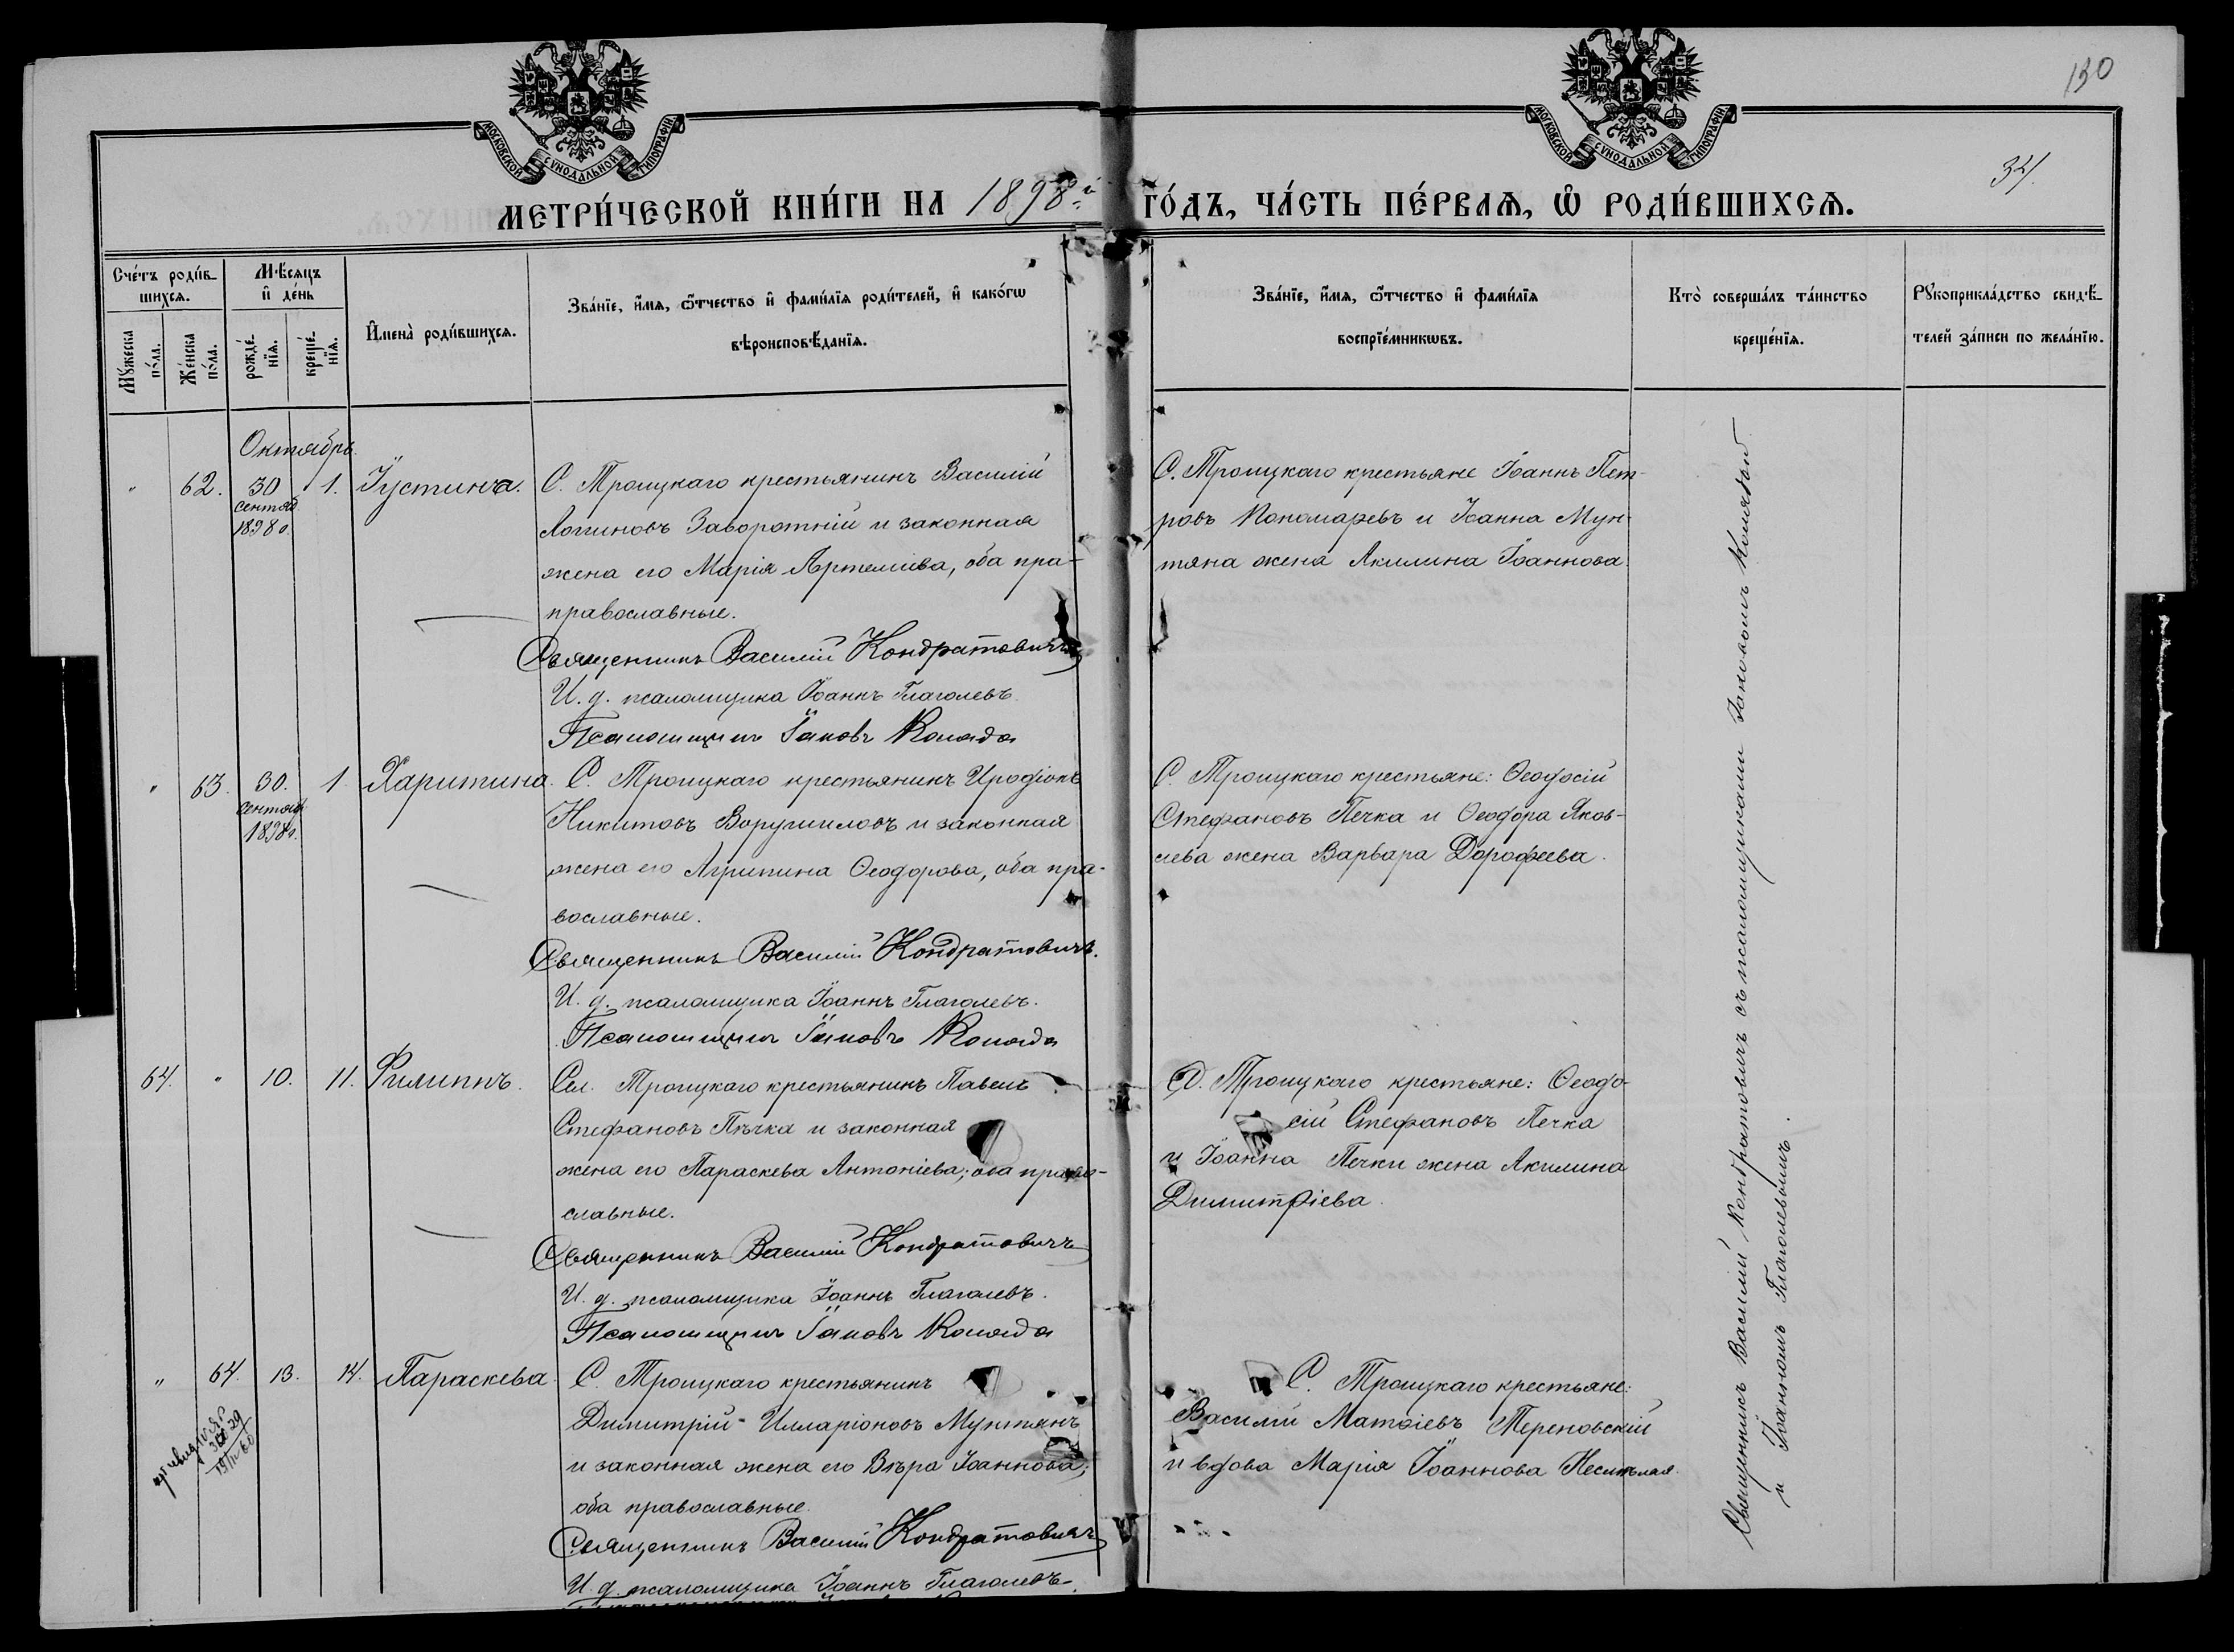 130
34.
МОСКОВСКОЙ СѴНОДАЛЬНОЙ ТИПОГРАФІИ
МОСКОВСКОЙ СѴНОДАЛЬНОЙ ТИПОГРАФІИ
МЕТРИ́ЧЕСКОЙ КНИ́ГИ НА 1898й ГО́ДЪ, ЧА́СТЬ ПЕ́РВАѦ, Ѡ҆ РОДИ́ВШИХСѦ.
Сче́тъ роди́в-
шихсѧ.
Мꙋ́жеска
по́ла.
Же́нска
по́ла.
Мѣ́сѧцъ
и҆ де́нь
рожде́-
нїѧ.
креще́-
нїѧ.
И҆мена̀ роди́вшихсѧ.
Зва́нїе, и҆́мѧ, ѻ҆́тчество и҆ фами́лїѧ роди́телей, и҆ како́гѡ
вѣроисповѣ́данїѧ.
Зва́нїе, и҆́мѧ, ѻ҆́тчество и҆ фами́лїѧ
воспрїе́мникѡвъ.
Кто̀ соверша́лъ та́инство
креще́нїѧ.
Рꙋкоприкла́дство свидѣ́-
телей за́писи по жела́нїю.
Октябрь.
" 62. 30 1. Іустина.
сентяб.
1898 г.
С. Троицкаго крестьянинъ Василій
Логиновъ Заворотній и законная
жена его Марія Артеміева, оба пра-
православные.
Священникъ Василій Кондратовичъ
И. д. псаломщика Іоаннъ Глаголевъ.
Псаломщикъ Іаковъ Коляда
С. Троицкаго крестьяне Іоаннъ Пет-
ровъ Пономаревъ и Іоанна Мун-
тяна жена Акилина Іоаннова.
" 63. 30. 1 Харитина.
сентяб.
1898 г.
С. Троицкаго крестьянинъ Иродіонъ
Никитовъ Ворушиловъ и законная
жена его Агрипина Ѳеодорова, оба пра-
вославные.
Священникъ Василій Кондратовичъ.
И. д. псаломщика Іоаннъ Глаголевъ.
Псаломщикъ Іаковъ Коляда
С. Троицкаго крестьяне: Ѳеодосій
Стефановъ Печка и Ѳеодора Яков-
лева жена Варвара Дорофеева.
64. " 10. 11. Филиппъ.
Сел. Троицкаго крестьянинъ Павелъ
Стефановъ Пѣчка и законная
жена его Параскева Антоніева; оба право-
славные.
Священникъ Василій Кондратовичъ
И. д. псаломщика Іоаннъ Глаголевъ.
Псаломщикъ Іаковъ Коляда
С. Троицкаго крестьяне: Ѳеодо-
сій Стефановъ Печка
и Іоанна Печки жена Акилина
Димитріева.
" 64. 13. 14. Параскева.
С. Троицкаго крестьянинъ
Димитрій Илларіоновъ Мунтянъ
и законная жена его Вѣра Іоаннова;
оба православные.
Священникъ Василій Кондратовичъ
И. д. псаломщика Іоаннъ Глаголевъ.
С. Троицкаго крестьяне:
Василій Матѳіевъ Терновскій
и вдова Марія Іоаннова
Священникъ Василій Кондратовичъ съ псаломщиками Іаковомъ Колядой
и Іоанномъ Глаголевымъ.